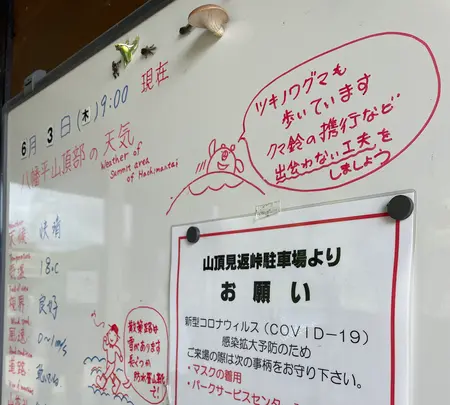 6月 3日(木) 9:00 現在
八幡平山頂部の天気
Weather of
Summit area
of Hachimantai
天候 快晴
気温 18℃
視界 良好
風速 0~1m/s
道路
ツキノワグマも
歩いています
クマ鈴の携行など
出会わない工夫を
しましょう
散策路は
雪があります
長ぐつか
防水登山靴で!
山頂見返峠駐車場より
お願い
新型コロナウィルス(COVID-19)
感染拡大予防のため
ご来場の際は次の事柄をお守り下さい。
・マスクの着用
・パークサービスセンタ